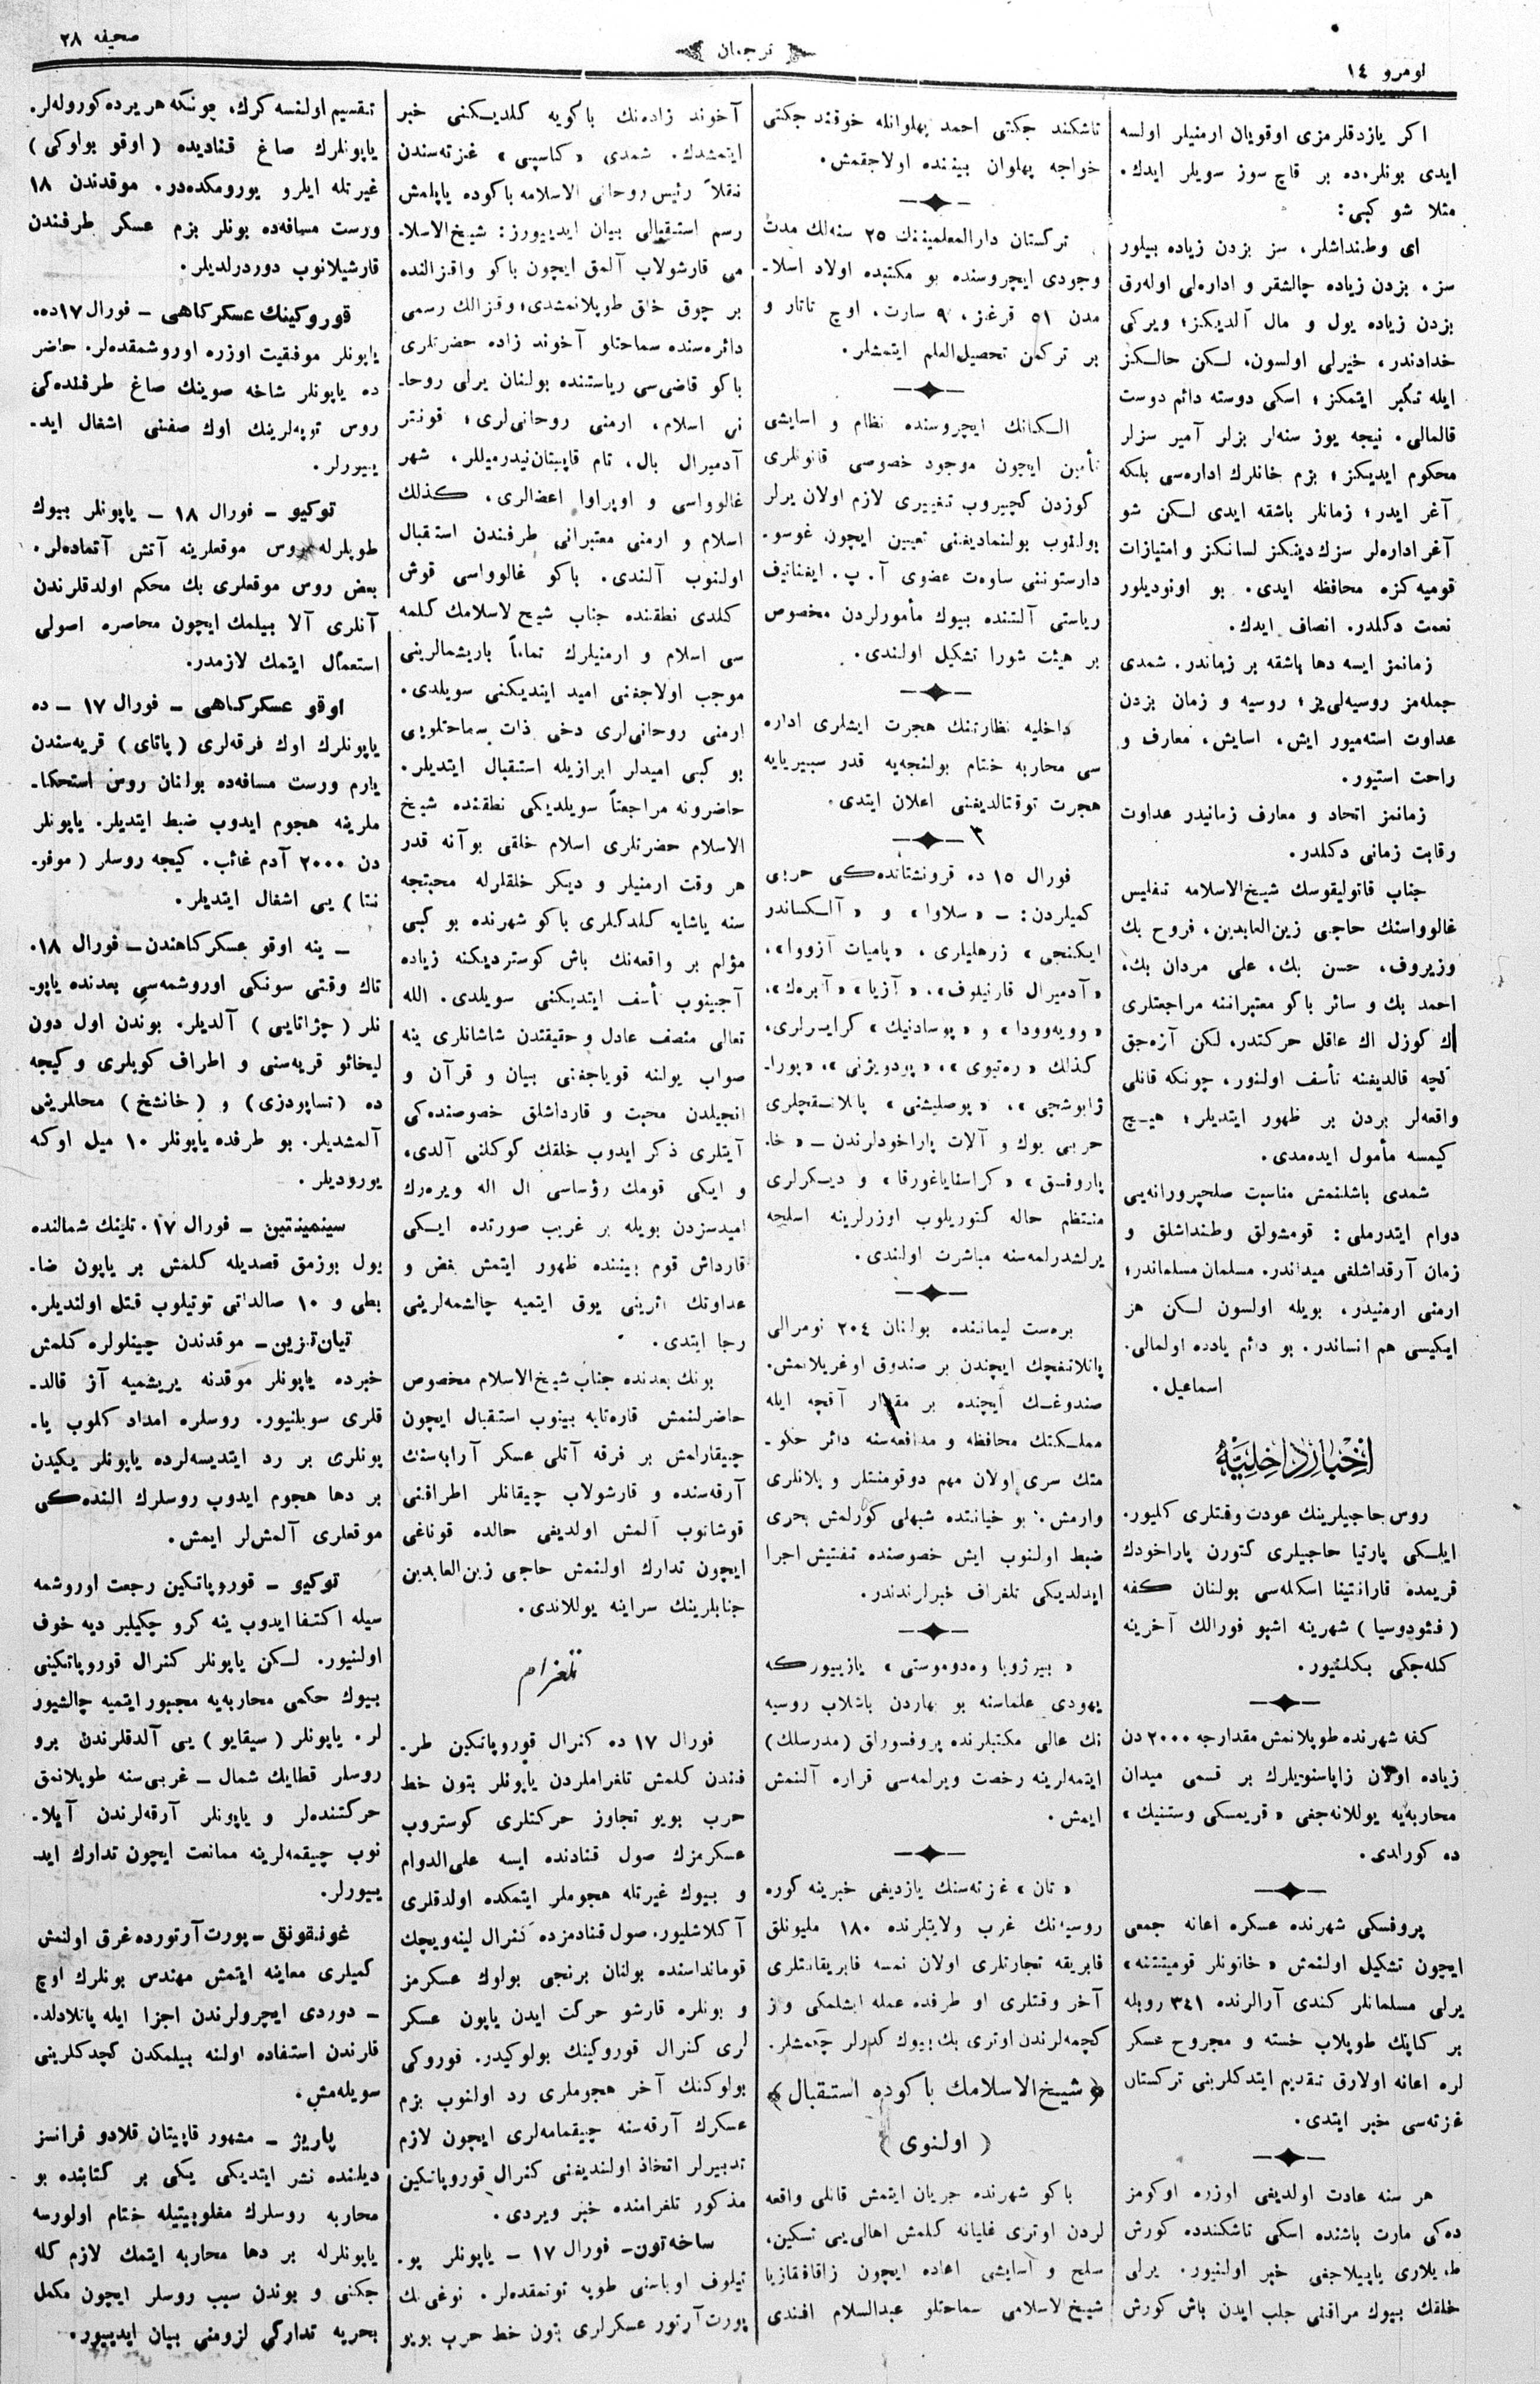 نومرو ١٤
ترجمان
صحیفه ٢٨
اكر یازدقلرمزی اوقویان ارمنیلر اولسه
ایدی بونلرده بر قاچ سوز سویلر ایدك.
مثلا شو كبی:
ای وطنداشلر، سز بزدن زیاده بیلور
سز، بزدن زیاده چالشقر و اداره‌لی اوله‌رق
بزدن زیاده یول و مال آلدیكز؛ ویركی
خدادندر، خیرلی اولسون، لكن حالكز
ایله تكبر ایتمكز؛ اسكی دوسته دائم دوست
قالمالی. نیجه یوز سنه‌لر بزلر آمیر سزلر
محكوم ایدیكز؛ بزم خانلرك اداره‌سی بلكه
آغر ایدر؛ زمانلر باشقه ایدی لكن شو
آغر اداره‌لر سزك دینكز لسانكز و امتیازات
قومیه‌كزه محافظه ایدی. بو اونودیلور
نعمت دكلدر. انصاف ایدك.
زمانمز ایسه دها باشقه بر زماندر. شمدی
جمله‌مز روسیه‌لی‌یز؛ روسیه و زمان بزدن
عداوت استه‌میور ایش، اسایش، معارف و
راحت استیور.
زمانمز اتحاد و معارف زمانیدر عداوت
رقابت زمانی دكلدر.
جناب قاتولیقوسك شیخ‌الاسلامه تفلیس
غالوواسنك حاجی زین‌العابدین، فروح بك
وزیروف، حسن بك، علی مردان بك،
احمد بك و سائر باكو معتبراننه مراجعتلری
اك كوزل اك عاقل حركتدر، لكن آزه‌جق
كچه قالدیغنه تأسف اولنور، چونكه قانلی
واقعه‌لر بردن بر ظهور ایتدیلر؛ هیچ
كیمسه مأمول ایده‌مدی.
شمدی باشلنمش مناسبت صلحپرورانه‌یی
دوام ایتدرملی: قومشولق وطنداشلق و
زمان آرقداشلغی میداندر. مسلمان مسلماندر؛
ارمنی ارمنیدر، بویله اولسون لكن هر
ایكیسی هم انساندر. بو دائم یادده اولمالی.
اسماعیل.
اخبار داخلیه
روس حاجیلرینك عودت وقتلری كلیور.
ایلكی پارتیا حاجیلری كتورن پاراخودك
قریمده قارانتینا اسكله‌سی بولنان كفه
(فئودوسیا) شهرینه اشبو فورالك آخرینه
كله‌جكی بكلنیور.
كفه شهرنده طوپلانمش مقدارجه ٢٠٠٠ دن
زیاده اولان زاپاسنویلرك بر قسمی میدان
محاربه‌یه یوللانه‌جغی «قریمسكی وستنیك»
ده كورلدی.
پروفسكی شهرنده عسكره اعانه جمعی
ایچون تشكیل اولنمش «خانونلر قومیتتنه»
یرلی مسلمانلر كندی آرالرنده ٣٤١ روبله
بر كاپك طوپلاب خسته و مجروح عسكر
لره اعانه اولارق تقدیم ایتدكلرینی تركستان
غزته‌سی خبر ایتدی.
هر سنه عادت اولدیغی اوزره اوكومز
ده‌كی مارت باشنده اسكی تاشكندده كورش
طویلاری یاپیلاجغی خبر اولنیور. یرلی
خلقك بیوك مراقنی جلب ایدن باش كورش
تاشكند جكتی احمد پهلوانله خوقند جكتی
خواجه پهلوان بیننده اولاجقمش.
تركستان دارالمعلمیننك ٢٥ سنه‌لك مدت
وجودی ایچروسنده بو مكتبده اولاد اسلا-
مدن ٥١ قرغز، ٩ سارت، اوچ تاتار و
بر تركمن تحصیل‌العلم ایتمشلر.
الكانك ایچروسنده نظام و اسایشی
تأمین ایچون موجود خصوصی قانونلری
كوزدن كچیروب تغییری لازم اولان یرلر
بولنوب بولنمادیغنی تعیین ایچون غوسو-
دارستوننی ساوه‌ت عضوی آ. پ. ایغناتیف
ریاستی آلتنده بیوك مأمورلردن مخصوص
بر هیئت شورا تشكیل اولندی.
داخلیه نظارتنك هجرت ایشلری اداره
سی محاربه ختام بولنجه‌یه قدر سیبیریایه
هجرت توقتالدیغنی اعلان ایتدی.
فورال ١٥ ده قرونشتاتده‌كی حربی
كمیلردن: – «سلاوا» و «آلكساندر
ایكنجی» زرهلیلری، «پامیات آزووا»،
«آدمیرال قارنیلوف»، «آزیا» «آبره‌ك»،
«وویه‌وودا» و «پوسادنیك» كرایسرلری،
كذلك «ره‌تیوی»، «پودویژنی»، «بورا-
ژابوشچی»، «پوصلیشنی» پالانسقچلری
حربی یوك و آلات پاراخودلرندن – «خا-
باروفسق» «كراسنایاغورقا» و دیكرلری
منتظم حاله كتوریلوب اوزرلرینه اسلیحه
یرلشدرلمه‌سنه مباشرت اولندی.
بره‌ست لیماننده بولنان ٢٠٤ نومرالی
پانلاتغچك ایچندن بر صندوق اوغریلانمش.
صندوغك ایچنده بر مقدار آقچه ایله
مملكتك محافظه و مدافعه‌سنه دائر حكو-
متك سری اولان مهم دوقومنتلر و پلانلری
وارمش. بو خیانتده شبهلی كورلمش بحری
ضبط اولنوب ایش خصوصنده تفتیش اجرا
ایدلدیكی تلغراف خبرلرندندر.
«بیرژویا وه‌دوموستی» یازییوركه
یهودی علماسنه بو بهاردن باشلاب روسیه
نك عالی مكتبلرنده پروفسوراق (مدرسلك)
ایتمه‌لرینه رخصت ویرلمه‌سی قراره آلنمش
ایمش.
«تان» غزته‌سنك یازدیغی خبرینه كوره
روسیه‌نك غرب ولایتلرنده ١٨٠ ملیونلق
فابریقه تجارتلری اولان نمسه فابریقانتلری
آخر وقتلری او طرفده عمله ایشلمكی واز
كچمه‌لرندن اوتری بك بیوك كدرلر چكمشلر.
﴿شیخ‌الاسلامك باكوده استقبال﴾
(اولنوی)
باكو شهرنده جریان ایتمش قانلی واقعه
لردن اوتری غلیانه كلمش اهالی‌یی تسكین،
سلح و آسایشی اعاده ایچون زاقافقازیا
شیخ‌الاسلامی سماحتلو عبدالسلام افندی
آخوند زاده‌نك باكویه كلدیكنی خبر
ایتمشدك. شمدی «كاسپی» غزته‌سندن
نقلاً رئیس روحانی الاسلامه باكوده یاپلمش
رسم استقبالی بیان ایدییورز: شیخ‌الاسلا-
می قارشولاب آلمق ایچون باكو واقزالنده
بر چوق خلق طوپلانمشدی؛ وقزالك رسمی
دائره‌سنده سماحتلو آخوند زاده حضرتلری
باكو قاضی‌سی ریاستنده بولنان یرلی روحا-
نی اسلام، ارمنی روحانی‌لری؛ قونتر
آدمیرال بال، تام قاپیتان‌نیدرمیللر، شهر
غالوواسی و اوپراوا اعضالری، كذلك
اسلام و ارمنی معتبرانی طرفندن استقبال
اولنوب آلندی. باكو غالوواسی قوش
كلدی نطقنده جناب شیخ لاسلامك كلمه
سی اسلام و ارمنیلرك تماماً باریشمالرینی
موجب اولاجغنی امید ایتدیكنی سویلدی.
ارمنی روحانی‌لری دخی ذات سماحتلویی
بو كبی امیدلر ابرازیله استقبال ایتدیلر.
حاضرونه مراجعتاً سویلدیكی نطقنده شیخ
الاسلام حضرتلری اسلام خلقی بو آنه قدر
هر وقت ارمنیلر و دیكر خلقلرله محبتجه
سنه یاشایه كلدكلری باكو شهرنده بو كبی
مؤلم بر واقعه‌نك باش كوستردیكنه زیاده
آجینوب تأسف ایتدیكنی سویلدی. الله
تعالی منصف عادل و حقیقتدن شاشانلری ینه
صواب یولنه قویاجغنی بیان و قرآن و
انجیلدن محبت و قارداشلق خصوصنده‌كی
آیتلری ذكر ایدوب خلقك كوكلنی آلدی،
و ایكی قومك رؤساسی ال اله ویره‌رك
امیدسزدن بویله بر غریب صورتده ایكی
قارداش قوم بیننده ظهور ایتمش بغض و
عداوتك اثرینی یوق ایتمیه چالشمه‌لرینی
رجا ایتدی.
بونك بعدنده جناب شیخ‌الاسلام مخصوص
حاضرلنمش قاره‌تایه بینوب استقبال ایچون
چیقارلمش بر فرقه آتلی عسكر آرابه‌سنك
آرقه‌سنده و قارشولاب چیقانلر اطرافنی
قوشانوب آلمش اولدیغی حالده قوناغی
ایچون تدارك اولنمش حاجی زین‌العابدین
جنابلرینك سراینه یوللاندی.
تلغرام
فورال ١٧ ده كنرال قوروپاتكین طر-
فندن كلمش تلغراملردن یاپونلر بتون خط
حرب بویو تجاوز حركتلری كوستروب
عسكرمزك صول قنادنده ایسه علی‌الدوام
و بیوك غیرتله هجوملر ایتمكده اولدقلری
آكلاشلیور. صول قنادمزده كنرال لینه‌ویچك
قومانداسنده بولنان برنجی بولوك عسكرمز
و بونلره قارشو حركت ایدن یاپون عسكر
لری كنرال قوروكینك بولوكیدر. فوروكی
بولوكنك آخر هجوملری رد اولنوب بزم
عسكرك آرقه‌سنه چیقمامه‌لری ایچون لازم
تدبیرلر اتخاذ اولندیغنی كنرال قوروپاتكین
مذكور تلغرامنده خبر ویردی.
ساخه‌تون– فورال ١٧ – یاپونلر پو-
تیلوف اوباسنی طوپه توتمقده‌لر. نوغی‌نك
پورت آرتور عسكرلری بتون خط حرب بویو
تقسیم اولنسه كرك، چونكه هر یرده كوروله‌لر.
یاپونلرك صاغ قنادیده (اوقو بواوكی)
غیرتله ایلرو یورومكده‌در. موقدندن ١٨
ورست مسافه‌ده بونلر بزم عسكر طرفندن
قارشیلانوب دوردرلدیلر.
قوروكینك عسكركاهی – فورال ١٧ ده.
یاپونلر موفقیت اوزره اوروشمقده‌لر. حاضر
ده یاپونلر شاخه صوینك صاغ طرفنده‌كی
روس تپه‌لرینك اوك صفنی اشغال اید-
ییورلر.
توكیو – فورال ١٨ – یاپونلر بیوك
طوپلرله روس موقعلرینه آتش آتماده‌لر.
بعض روس موقعلری بك محكم اولدقلرندن
آنلری آلا بیلمك ایچون محاصره اصولی
استعمال ایتمك لازمدر.
اوقو عسكركاهی – فورال ١٧ – ده
یاپونلرك اوك فرقه‌لری (پاتای) قریه‌سندن
یارم ورست مسافه‌ده بولنان روس استحكا-
ملرینه هجوم ایدوب ضبط ایتدیلر. یاپونلر
دن ٢٠٠٠ آدم غائب. كیجه روسلر (موفر-
نتا) یی اشغال ایتدیلر.
– ینه اوقو عسكركاهندن – فورال ١٨.
تاك وقتی سونكی اوروشمه‌سی بعدنده یاپو-
نلر (چژاتایی) آلدیلر. بوندن اول دون
لیخائو قریه‌سنی و اطراف كویلری و كیجه
ده (تساپودزی) و (خانشخ) محاللرینی
آلمشدیلر. بو طرفده یاپونلر ١٠ میل اوكه
یورودیلر.
سینمینتین – فورال ١٧. تلینك شمالنده
یول بوزمق قصدیله كلمش بر یاپون ضا-
بطی و ١٠ صالداتی توتیلوب قتل اولندیلر.
تیان‌تزین – موقدندن چینلولره كلمش
خبرده یاپونلر موقدنه یریشمیه آز قالد-
قلری سویلنیور. روسلره امداد كلوب یا-
پونلری بر رد ایتدیسه‌لرده یاپونلر یكیدن
بر دها هجوم ایدوب روسلرك النده‌كی
موقعلری آلمش‌لر ایمش.
توكیو – قوروپاتكین رجعت اوروشمه
سیله اكتفا ایدوب ینه كرو چكیلیر دیه خوف
اولنیور. لكن یاپونلر كنرال قوروپاتكینی
بیوك حكمی محاربه‌یه مجبور ایتمیه چالشیور
لر. یاپونلر (سیقایو) یی آلدقلرندن برو
روسلر قطایك شمال – غربی‌سنه طوپلانمق
حركتنده‌لر و یاپونلر آرقه‌لرندن آیلا-
نوب چیقمه‌لرینه ممانعت ایچون تدارك اید
ییورلر.
غونقونق – پورت آرتورده غرق اولنمش
كمیلری معاینه ایتمش مهندس بونلرك اوچ
– دوردی ایچرولرندن اجزا ایله پاتلادلد.
قارندن استفاده اولنه بیلمكدن كچدكلرینی
سویله‌مش.
پاریژ – مشهور قاپیتان قلادو فرانسز
دیلنده نشر ایتدیكی یكی بر كتابنده بو
محاربه روسلرك مغلوبیتیله ختام اولورسه
یاپونلرله بر دها محاربه ایتمك لازم كله
جكنی و بوندن سبب روسلر ایچون مكمل
بحریه تداركی لزومنی بیان ایدییور.